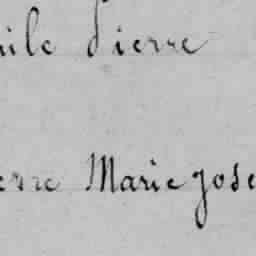 ile Pierre
erre Marie Jose